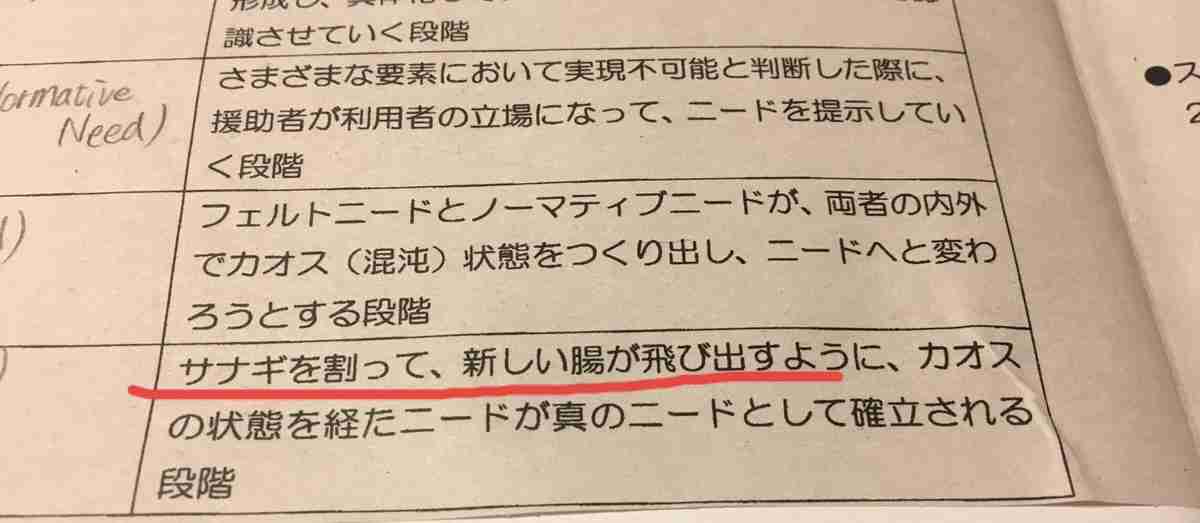 識させていく段階
ormative
Need)
さまざまな要素において実現不可能と判断した際に、
援助者が利用者の立場になって、ニードを提示してい
く段階
フェルトニードとノーマティブニードが、両者の内外
でカオス（混沌）状態をつくり出し、ニードへと変わ
ろうとする段階
サナギを割って、新しい腸が飛び出すように、カオス
の状態を経たニードが真のニードとして確立される
段階
●ス
2